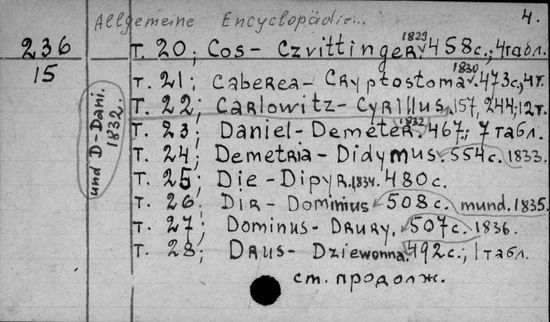 Allgemeine Encyclopädie... 4.
236 т. 20; Cos- Czvittinger. 1829 458с.; 4табл.
15
т. 21; Caberea- Cryptostoma. 1830 473с., 4т.
т. 22; Carlowitz- Cyrillus, 157, 244; 12т.
und D-Dani. 1832.
т. 23; Daniel-Demeter. 1832 467; 7табл.
т. 24; Demetria-Didymus. 554с. 1833.
т. 25; Die-Dipyr. 1834. 480с.
т. 26; Dir-Dominius 508с. mund. 1835.
т. 27; Dominus-Drury, 507с. 1836.
т. 28; Drus-Dziewonna. 492с.; 1табл.
см. продолж.